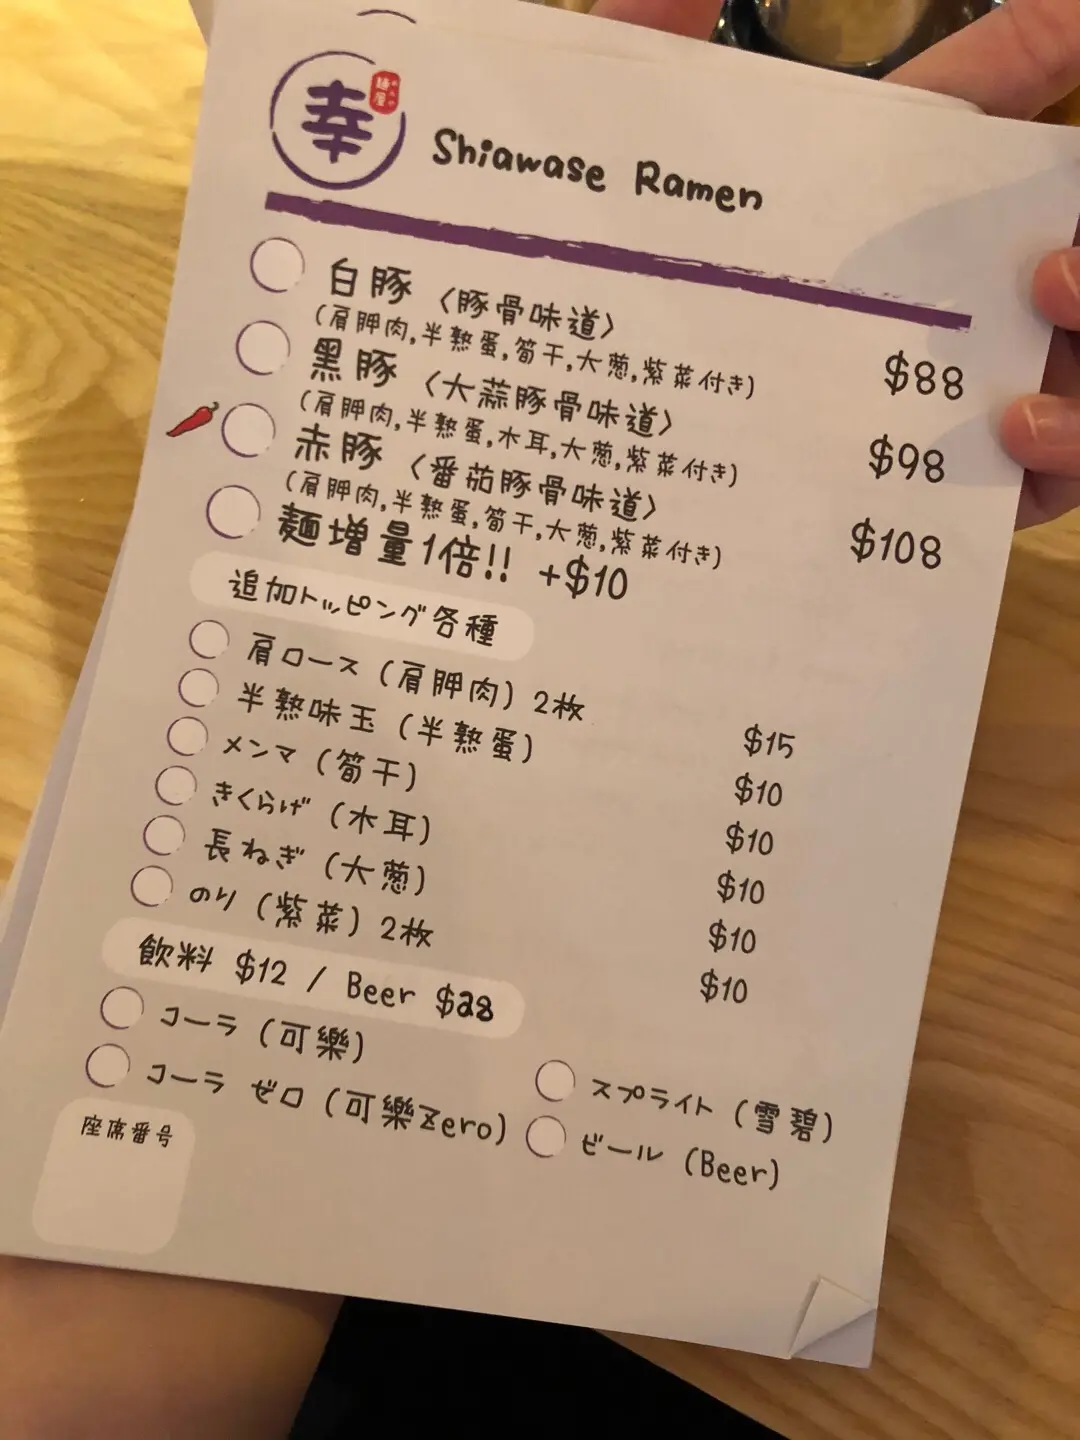 幸
麺屋
Shiawase Ramen
白豚 〈豚骨味道〉
(肩胛肉,半熟蛋,筍干,大葱,紫菜付き) $88
黒豚 〈大蒜豚骨味道〉
(肩胛肉,半熟蛋,木耳,大葱,紫菜付き) $98
赤豚 〈番茄豚骨味道〉
(肩胛肉,半熟蛋,筍干,大葱,紫菜付き) $108
麺増量1倍!! +$10
追加トッピング各種
肩ロース (肩胛肉) 2枚 $15
半熟味玉 (半熟蛋) $10
メンマ (筍干) $10
きくらげ (木耳) $10
長ねぎ (大葱) $10
のり (紫菜) 2枚 $10
飲料 $12 / Beer $28
コーラ (可樂)
スプライト (雪碧)
コーラ ゼロ (可樂Zero)
ビール (Beer)
座席番号